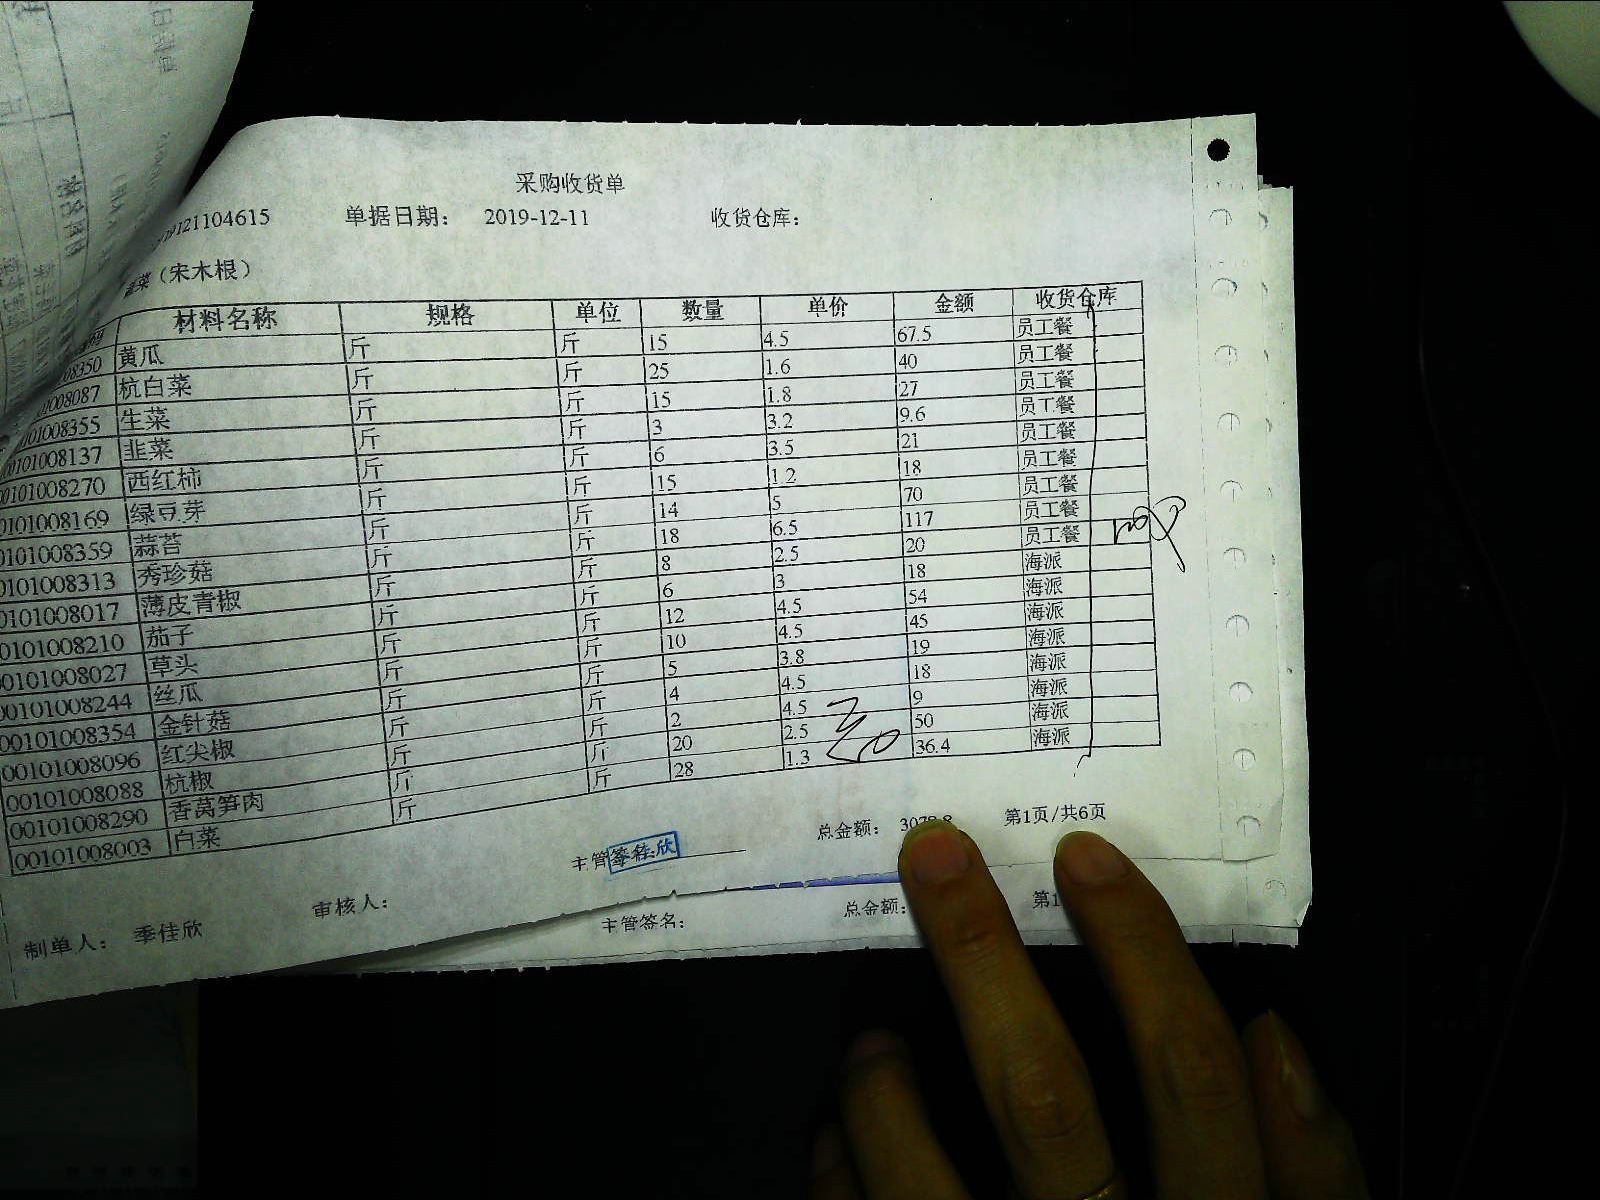 采购收货单
9121104615 单据日期： 2019-12-11 收货仓库：
菜（宋木根）
码 材料名称 规格 单位 数量 单价 金额 收货仓库
08350 黄瓜 斤 斤 15 4.5 67.5 员工餐
01008087 杭白菜 斤 斤 25 1.6 40 员工餐
0101008355 生菜 斤 斤 15 1.8 27 员工餐
0101008137 韭菜 斤 斤 3 3.2 9.6 员工餐
0101008270 西红柿 斤 斤 6 3.5 21 员工餐
0101008169 绿豆芽 斤 斤 15 1.2 18 员工餐
0101008359 蒜苔 斤 斤 14 5 70 员工餐
0101008313 秀珍菇 斤 斤 18 6.5 117 员工餐
0101008017 薄皮青椒 斤 斤 8 2.5 20 员工餐
0101008210 茄子 斤 斤 6 3 18 海派
00101008027 草头 斤 斤 12 4.5 54 海派
00101008244 丝瓜 斤 斤 10 4.5 45 海派
00101008354 金针菇 斤 斤 5 3.8 19 海派
00101008096 红尖椒 斤 斤 4 4.5 18 海派
00101008088 杭椒 斤 斤 2 4.5 9 海派
00101008290 香莴笋肉 斤 斤 20 2.5 50 海派
00101008003 白菜 斤 斤 28 1.3 36.4 海派
制单人： 季佳欣 审核人： 主管 季佳欣 总金额： 第1页/共6页
主管签名： 总金额： 第1